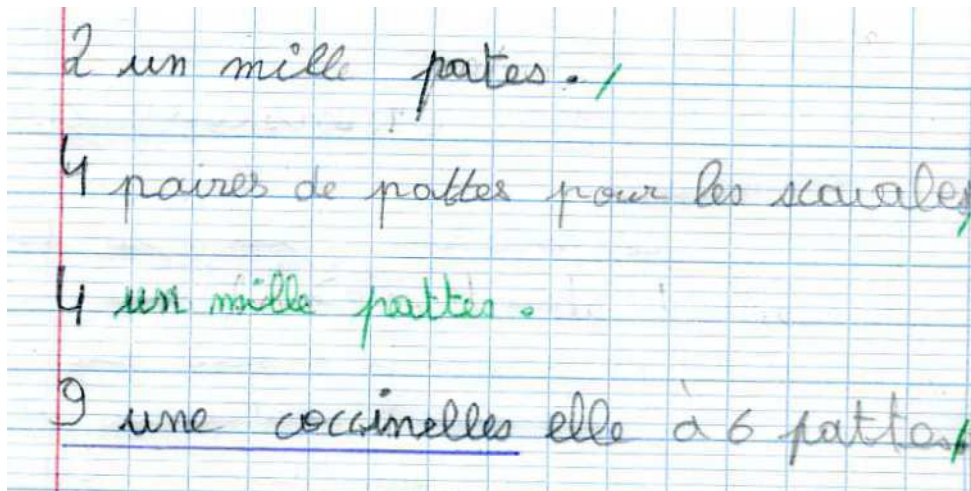 2 un mille pates.
4 paires de pattes pour les scarales
4 un mille pattes.
9 une coccinelles elle à 6 pattes